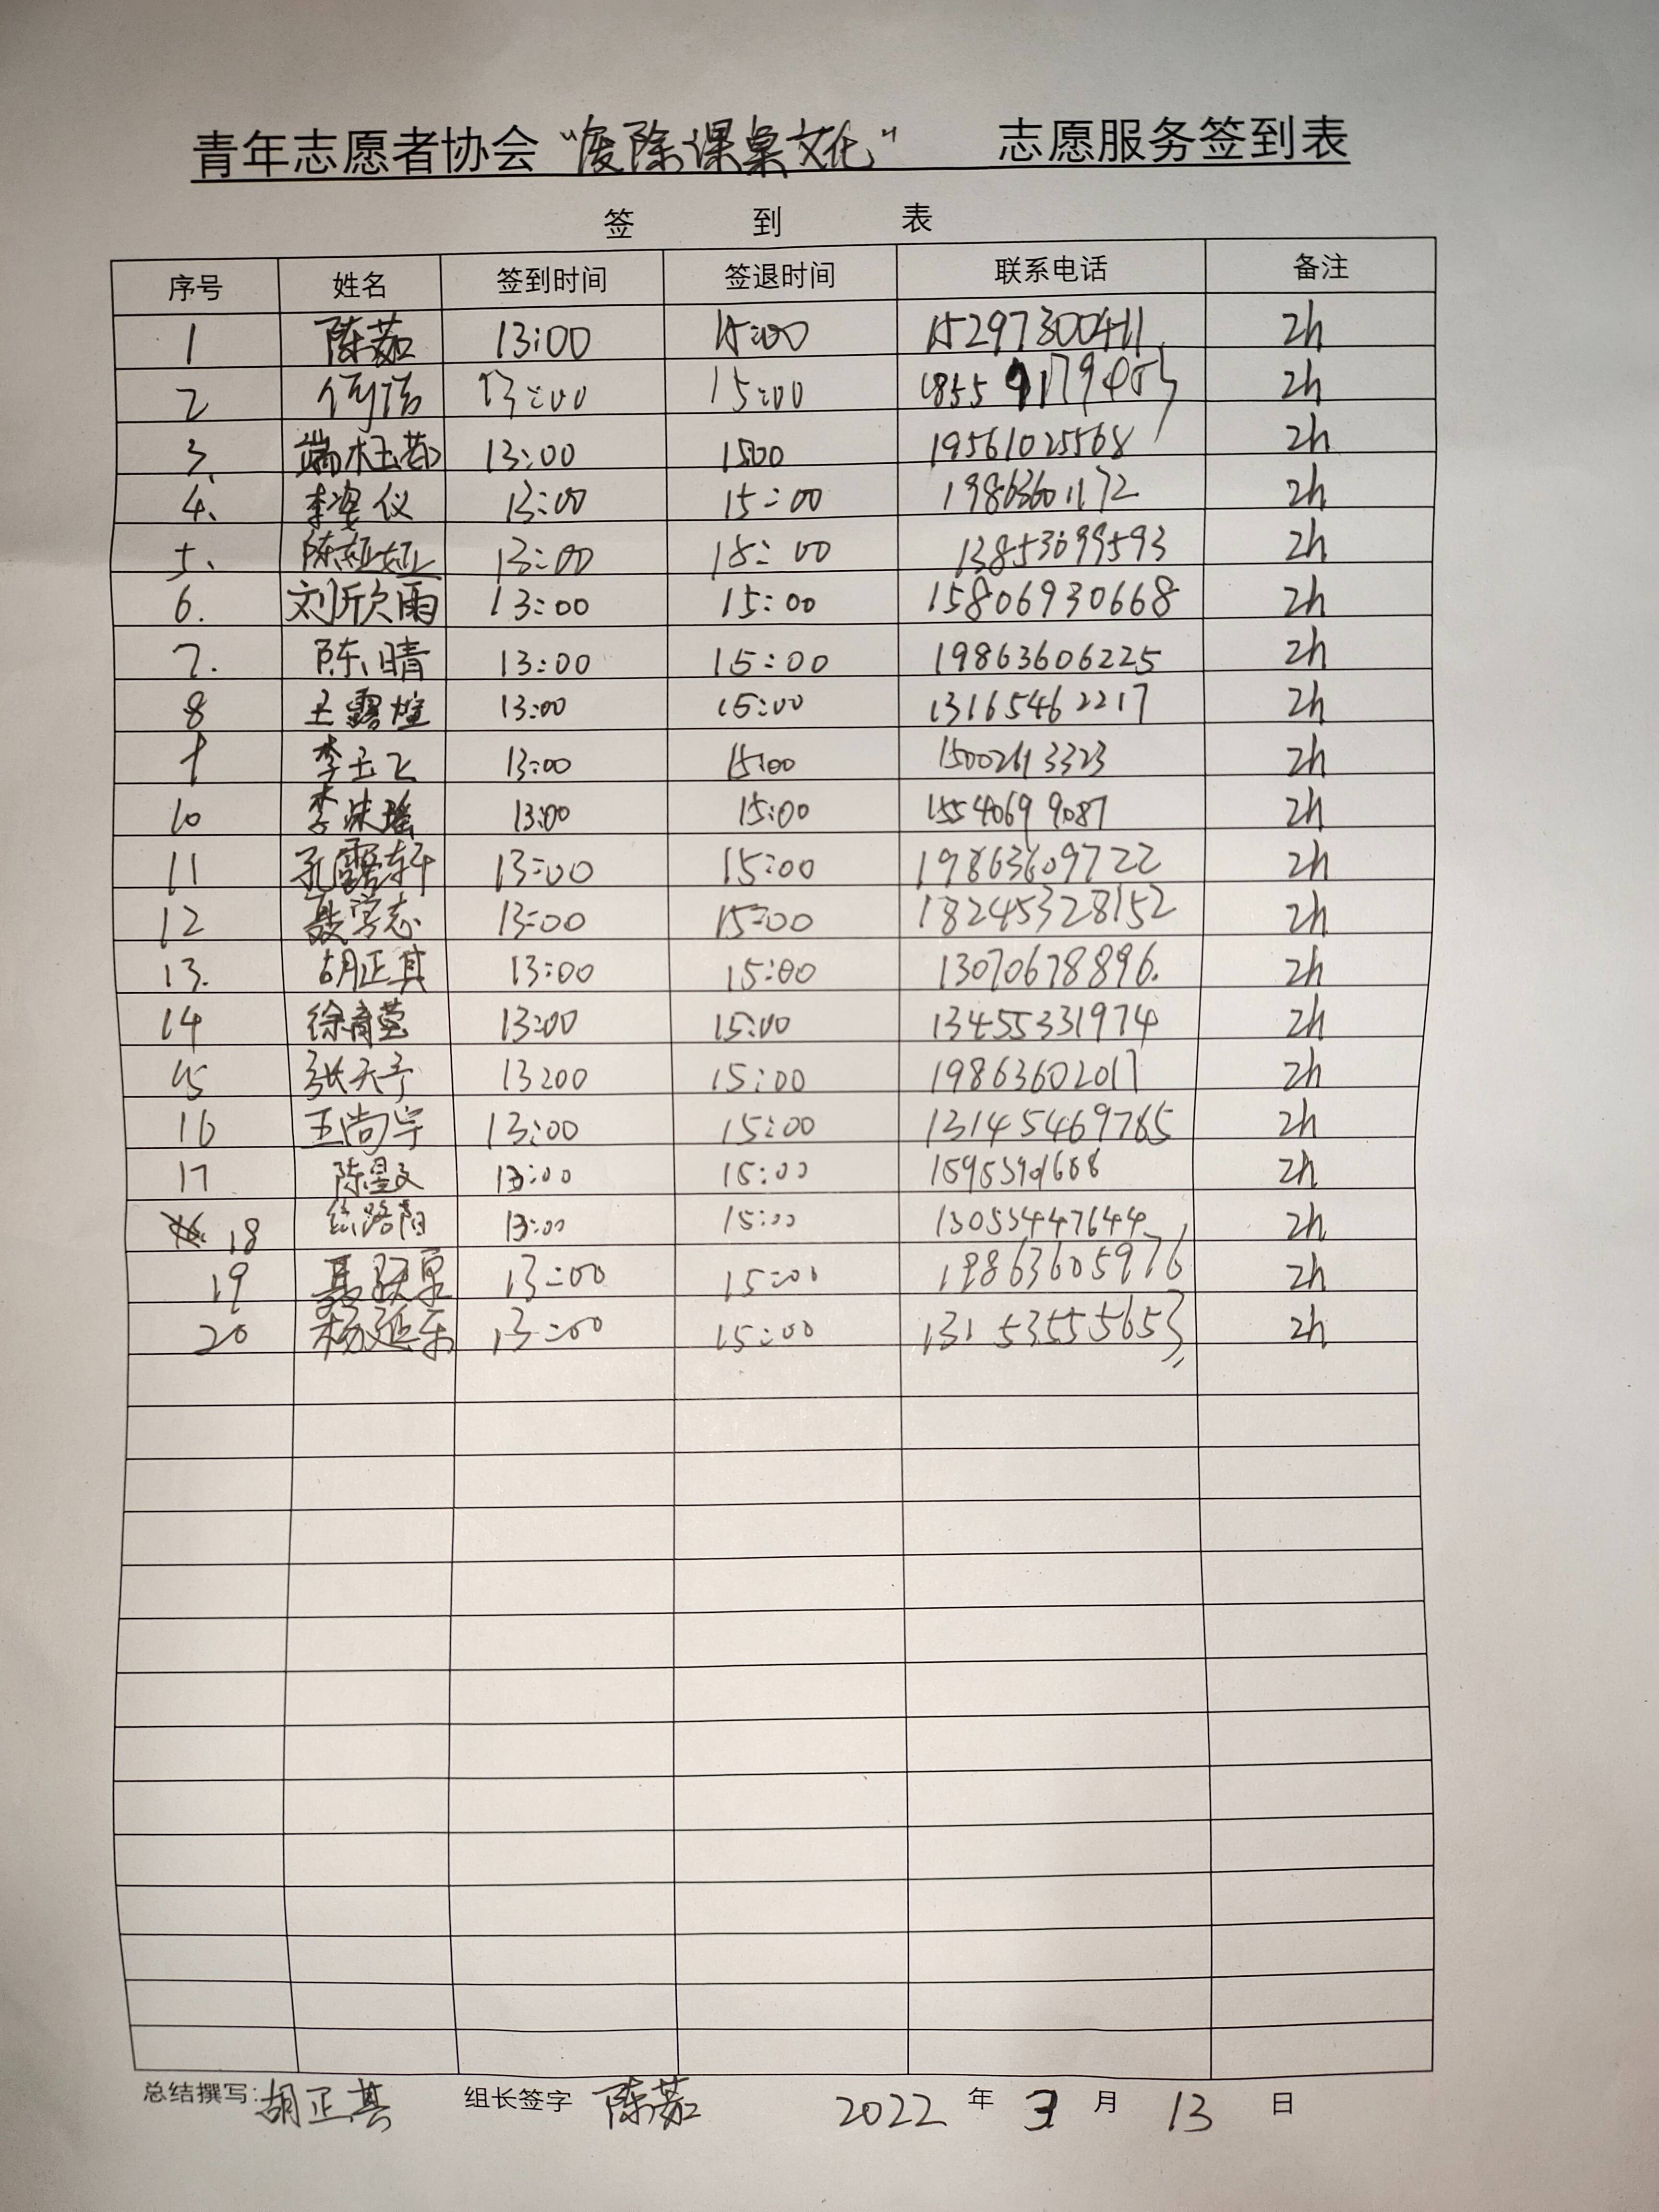 青年志愿者协会“废除课桌文化” 志愿服务签到表
签 到 表
序号 姓名 签到时间 签退时间 联系电话 备注
1 陈茹 13:00 15:00 15297300411 2h
2 13:00 15:00 2h
3、 13:00 1500 19561025568 2h
4、 李姿仪 13:00 15:00 19863601172 2h
5、 陈娅娅 13:00 15:00 13853099593 2h
6. 刘欣雨 13:00 15:00 15806930668 2h
7. 陈晴 13:00 15:00 19863606225 2h
8 王露煊 13:00 15:00 13165462217 2h
9 李玉飞 13:00 15:00 2h
10 李沫瑶 13:00 15:00 15540699087 2h
11 孔露轩 13:00 15:00 19863609722 2h
12 聂学志 13:00 15:00 18245328152 2h
13. 胡正其 13:00 15:00 13070678896. 2h
14 13:00 15:00 13455331974 2h
15 张天宁 13:00 15:00 19863602017 2h
16 王尚宇 13:00 15:00 13145469765 2h
17 陈显文 13:00 15:00 15953901688 2h
18 13:00 15:00 13053447644 2h
19 13:00 15:00 19863605976 2h
20 杨延东 13:00 15:00 13153555653 2h
总结撰写: 胡正其 组长签字 陈茹 2022 年 3 月 13 日